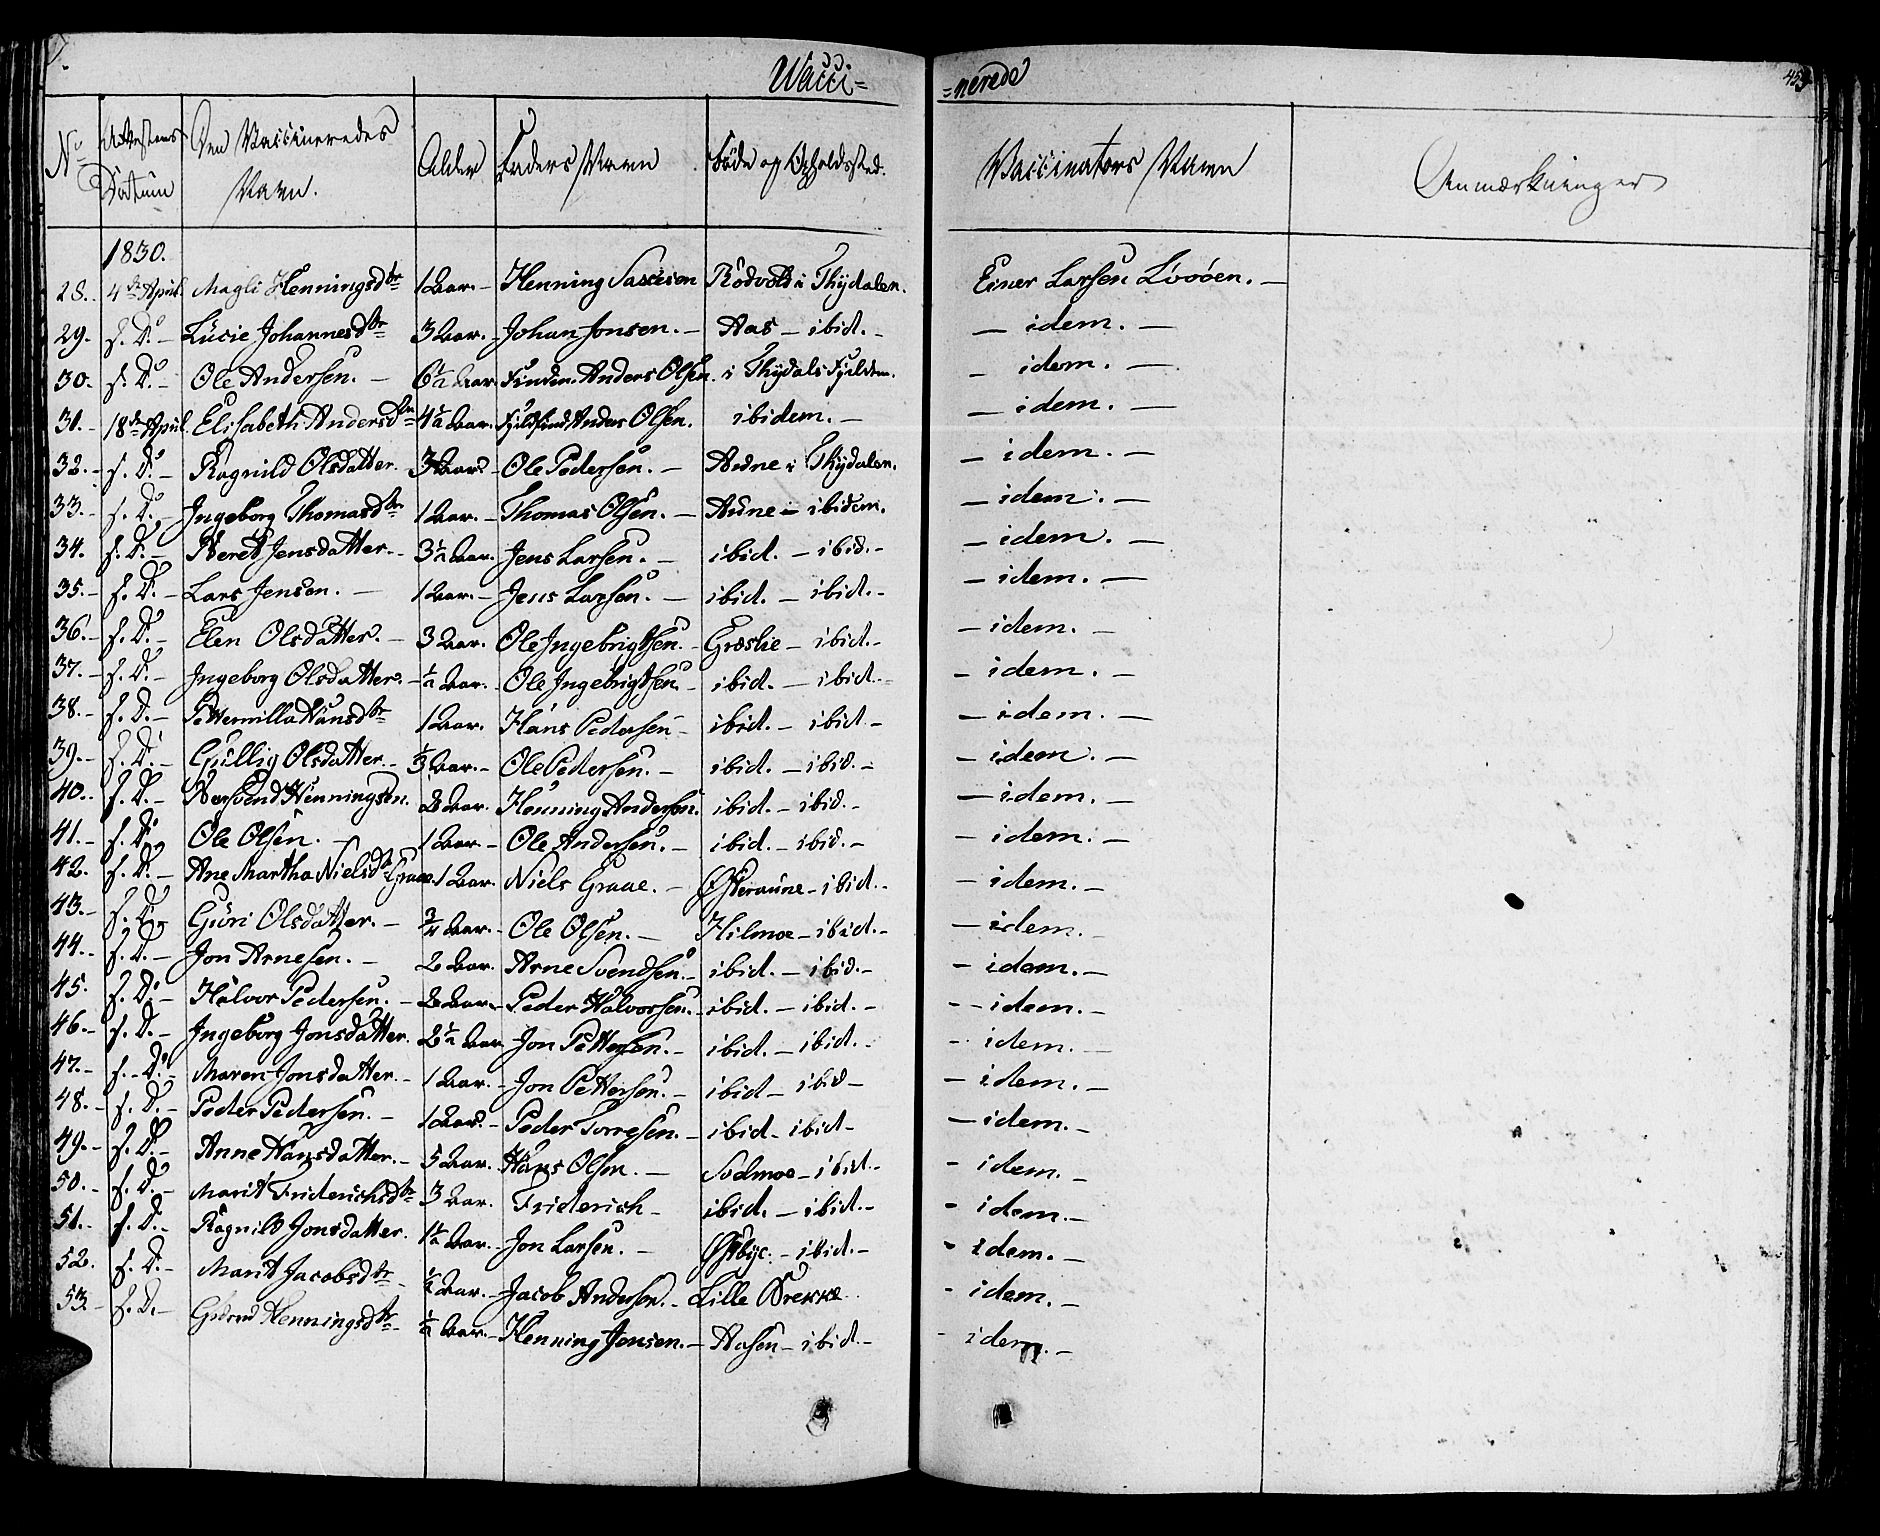 Wacci= =nerede
No Attestens Datum Den Vaccineredes Navn. Alder Faders Navn Føde og Opholdssted. Vaccinators Navn Anmærkninger
1830.
28. 4de April. Magli Henningsdtr 1 Aar. - Henning Rødvold i Thydalen. Einer Larsen Løvøen. -
29. s. D. - Lucie Johannesdtr 3 Aar. - Johan Jonsen. - Aas - ibid. - - idem. -
30. s. D. - Ole Andersen. - 6½ Aar. Finden Anders Olsen. i Thydals Fjeldem. - idem. -
31. 18de April. Elisabeth Andersdtr 4½ Aar. Fjeldfind Anders Olsen. ibidem. - - idem. -
32. s. D. - Ragnild Olsdatter. 3 Aar. - Ole Pedersen. - Aune i Thydalen. - idem. -
33. s. D. - Ingeborg Thomasdtr 1 Aar. - Thomas Olsen. - Aune - ibidem. - idem. -
34. s. D. - Beret Jensdatter. - 3½ Aar. Jens Larsen. - ibid. - ibid. - - idem. -
35. s. D. - Lars Jensen. - 1 Aar. - Jens Larsen. - ibid. - ibid. - - idem. -
36. s. D. - Elen Olsdatter. - 3 Aar. Ole Ingebrigtsen. - Græslie - ibid. - - idem. -
37. s. D. - Ingeborg Olsdatter. - ½ Aar. - Ole Ingebrigtsen. - ibid. - ibid. - - idem. -
38. s. D. - Petternilla Hansdtr 1 Aar. Hans Pedersen - ibid. - ibid. - - idem. -
39. s. D. - Gullig Olsdatter. - ⅓ Aar. - Ole Pedersen. - ibid. - ibid. - - idem. -
40. s. D. - Bersvend Henningsen. 2 Aar. Henning Andersen. ibid. - ibid. - - idem. -
41. s. D. Ole Olsen. - 1 Aar. - Ole Andersen. - ibid. - ibid. - - idem. -
42. s. D. - Ane Martha Nielsdtr Graae. 1 Aar. Niels Graae. - Østeraune - ibid. - - idem. -
43. s. D. - Guri Olsdatter. - ¾ Aar. - Ole Olsen. - Hilmoe - ibid. - - idem. -
44. s. D. - Jon Arnesen. - 2 Aar. Arne Svendsen. - ibid. - ibid. - - idem. -
45. s. D. - Halvor Pedersen. - 2 Aar. - Peder Halvorsen. - ibid. - ibid. - - idem. -
46. s. D. - Ingeborg Jonsdatter. 2½ Aar Jon Pettersen. - ibid. - ibid. - - idem. -
47. s. D. - Maren Jonsdatter. - 1 Aar. - Jon Pettersen. - ibid - ibid - - idem. -
48. s. D. - Peder Pedersen. - 1 Aar. - Peder Torresen. - ibid - ibid - - idem. -
49. s. D. Anne Hansdatter. - 5 Aar. Hans Olsen. - - ibid. - - idem. -
50. s. D. - Marit Friderichsdtr 3 Aar. Friderich - ibid. - ibid. - - idem. -
51. s. D. - Ragnild Jonsdatter. 1½ Aar. - Jon Larsen. - Østbye. - ibid. - - idem. -
52. s. D. - Marit Jacobsdtr - ½ Aar. - Jacob Andersen. - Lille Brekke. - idem. -
53. s. D. - Henningsdtr - ½ Aar. - Henning Jensen. - Aasen - ibid. - - idem. -